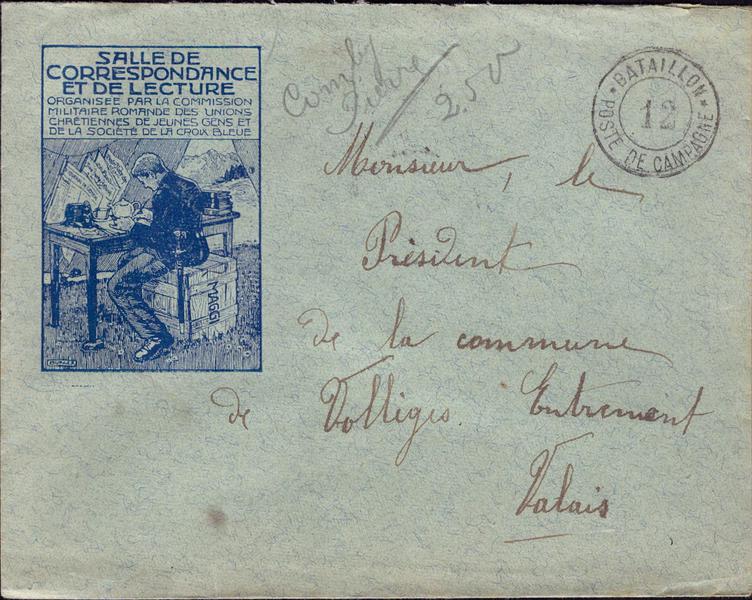 SALLE DE
CORRESPONDANCE
ET DE LECTURE
ORGANISÉE PAR LA COMMISSION
MILITAIRE ROMANDE DES UNIONS
CHRÉTIENNES DE JEUNES GENS ET
DE LA SOCIÉTÉ DE LA CROIX BLEUE
MAGGI
Comby
Pierre
2.50
* BATAILLON *
12
POSTE DE CAMPAGNE
Monsieur, le
Président
de la commune
de Vollèges. Entremont
Valais